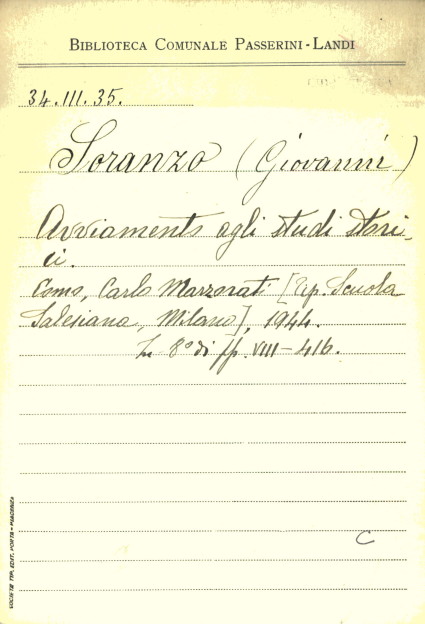 BIBLIOTECA COMUNALE PASSERINI-LANDI
34.III.35.
Soranzo (Giovanni)
Avviamento agli studi stori-
ci.
Como, Carlo Marzorati [Tip. Scuola
Salesiana, Milano], 1944.
In 8° di pp. VIII-416.
C
SOCIETÀ TIP. EDIT. PORTA - PIACENZA